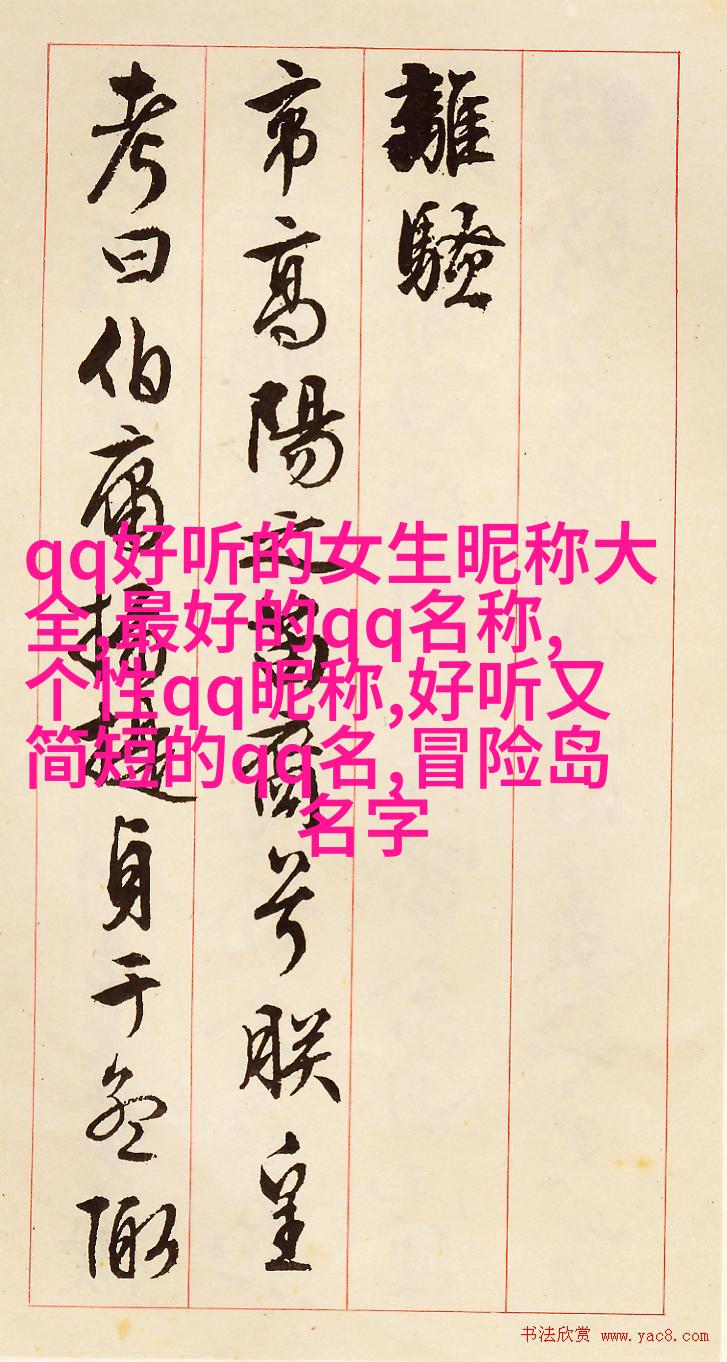 離騷
帝高陽之苗裔兮朕皇
考曰伯庸攝提貞于孟陬
qq好听的女生昵称大
全,最好的qq名称,
个性qq昵称,好听又
简短的qq名,冒险岛
名字
书法欣赏 www.yac8.com